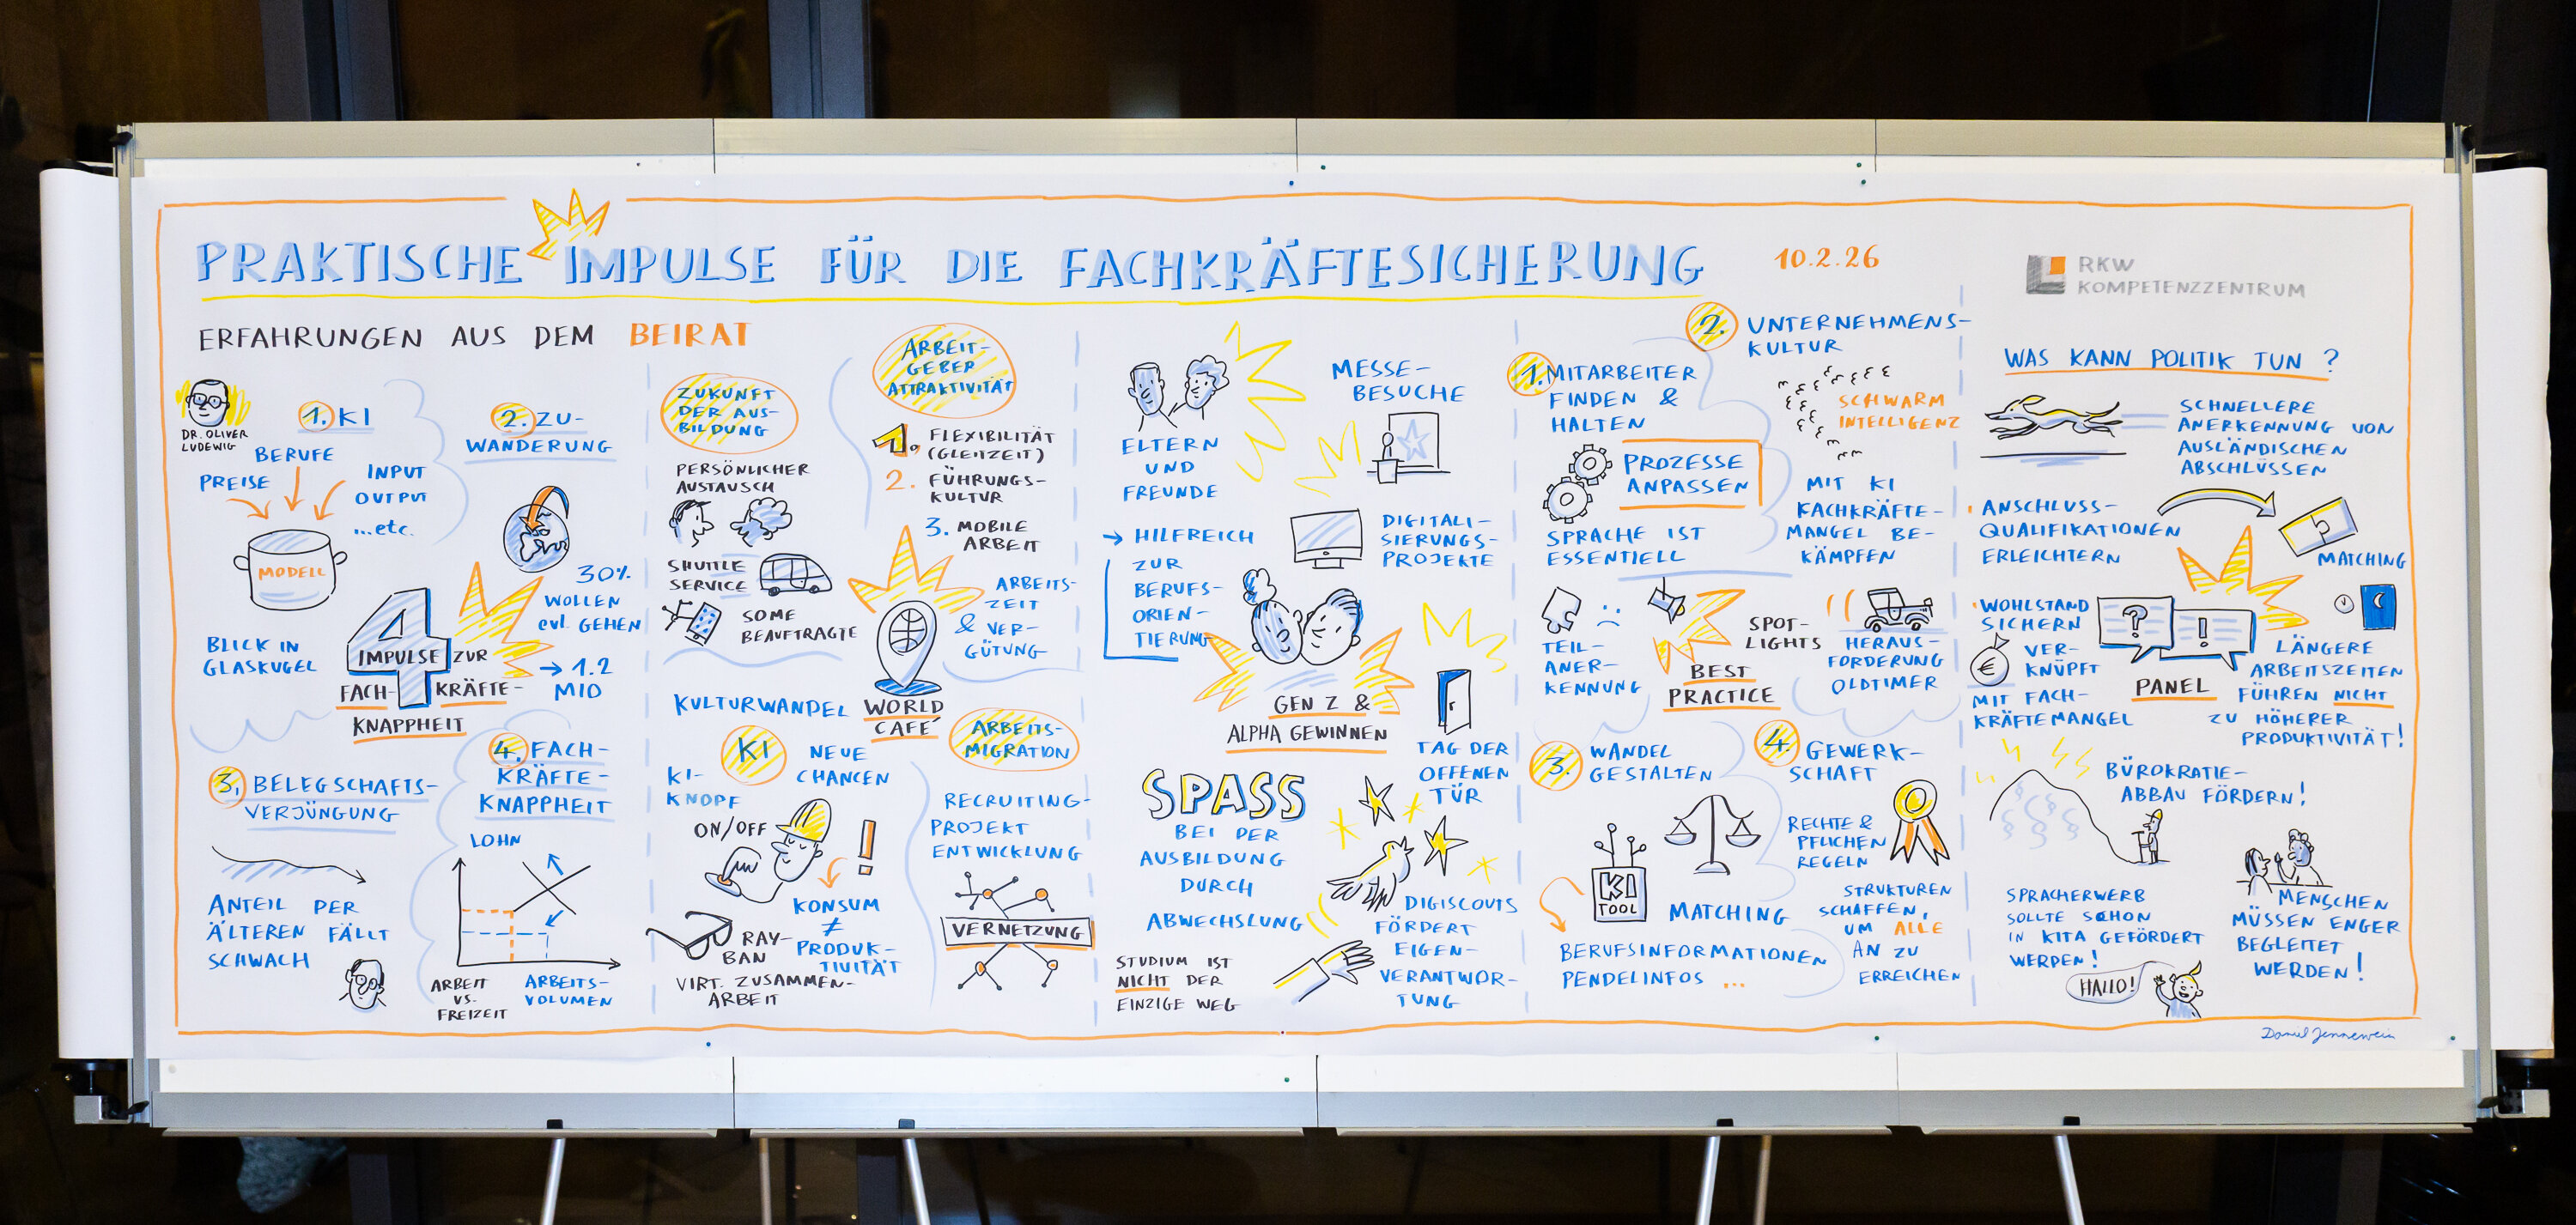 PRAKTISCHE IMPULSE FÜR DIE FACHKRÄFTESICHERUNG
10.2.26
RKW
KOMPETENZZENTRUM
ERFAHRUNGEN AUS DEM BEIRAT
DR. OLIVER
LUDEWIG
1. KI
BERUFE
PREISE
INPUT
OUTPUT
...etc.
MODELL
BLICK IN
GLASKUGEL
2. ZU-
WANDERUNG
30%
WOLLEN
evl. GEHEN
→ 1.2
MIO
4
IMPULSE ZUR
FACH-KRÄFTE-
KNAPPHEIT
3. BELEGSCHAFTS-
VERJÜNGUNG
ANTEIL DER
ÄLTEREN FÄLLT
SCHWACH
4. FACH-
KRÄFTE-
KNAPPHEIT
LOHN
ARBEIT
VS.
FREIZEIT
ARBEITS-
VOLUMEN
ZUKUNFT
DER AUS-
BILDUNG
PERSÖNLICHER
AUSTAUSCH
SHUTTLE
SERVICE
SOME
BEAUFTRAGTE
ARBEIT-
GEBER
ATTRAKTIVITÄT
1. FLEXIBILITÄT
(GLEITZEIT)
2. FÜHRUNGS-
KULTUR
3. MOBILE
ARBEIT
ARBEITS-
ZEIT
& VER-
GÜTUNG
WORLD
CAFÉ
KULTURWANDEL
KI
NEUE
CHANCEN
KI-
KNOPF
ON/OFF
!
KONSUM
≠
PRODUK-
TIVITÄT
RAY-
BAN
VIRT. ZUSAMMEN-
ARBEIT
ARBEITS-
MIGRATION
RECRUITING-
PROJEKT
ENTWICKLUNG
VERNETZUNG
ELTERN
UND
FREUNDE
→ HILFREICH
ZUR
BERUFS-
ORIEN-
TIERUNG
MESSE-
BESUCHE
DIGITALI-
SIERUNGS-
PROJEKTE
GEN Z &
ALPHA GEWINNEN
TAG DER
OFFENEN
TÜR
SPASS
BEI DER
AUSBILDUNG
DURCH
ABWECHSLUNG
STUDIUM IST
NICHT DER
EINZIGE WEG
DIGISCOUTS
FÖRDERT
EIGEN-
VERANTWOR-
TUNG
1. MITARBEITER
FINDEN &
HALTEN
PROZESSE
ANPASSEN
SPRACHE IST
ESSENTIELL
TEIL-
ANER-
KENNUNG
2. UNTERNEHMENS-
KULTUR
SCHWARM
INTELLIGENZ
MIT KI
FACHKRÄFTE-
MANGEL BE-
KÄMPFEN
SPOT-
LIGHTS
BEST
PRACTICE
HERAUS-
FORDERUNG
OLDTIMER
3. WANDEL
GESTALTEN
KI
TOOL
MATCHING
BERUFSINFORMATIONEN
PENDELINFOS ...
4. GEWERK-
SCHAFT
RECHTE &
PFLICHEN
REGELN
STRUKTUREN
SCHAFFEN,
UM ALLE
AN ZU
ERREICHEN
WAS KANN POLITIK TUN ?
SCHNELLERE
ANERKENNUNG VON
AUSLÄNDISCHEN
ABSCHLÜSSEN
ANSCHLUSS-
QUALIFIKATIONEN
ERLEICHTERN
MATCHING
WOHLSTAND
SICHERN
€
VER-
KNÜPFT
MIT FACH-
KRÄFTEMANGEL
?
!
PANEL
LÄNGERE
ARBEITSZEITEN
FÜHREN NICHT
ZU HÖHERER
PRODUKTIVITÄT!
BÜROKRATIE-
ABBAU FÖRDERN!
SPRACHERWERB
SOLLTE SCHON
IN KITA GEFÖRDERT
WERDEN!
HALLO!
MENSCHEN
MÜSSEN ENGER
BEGLEITET
WERDEN!
Daniel Jennewein